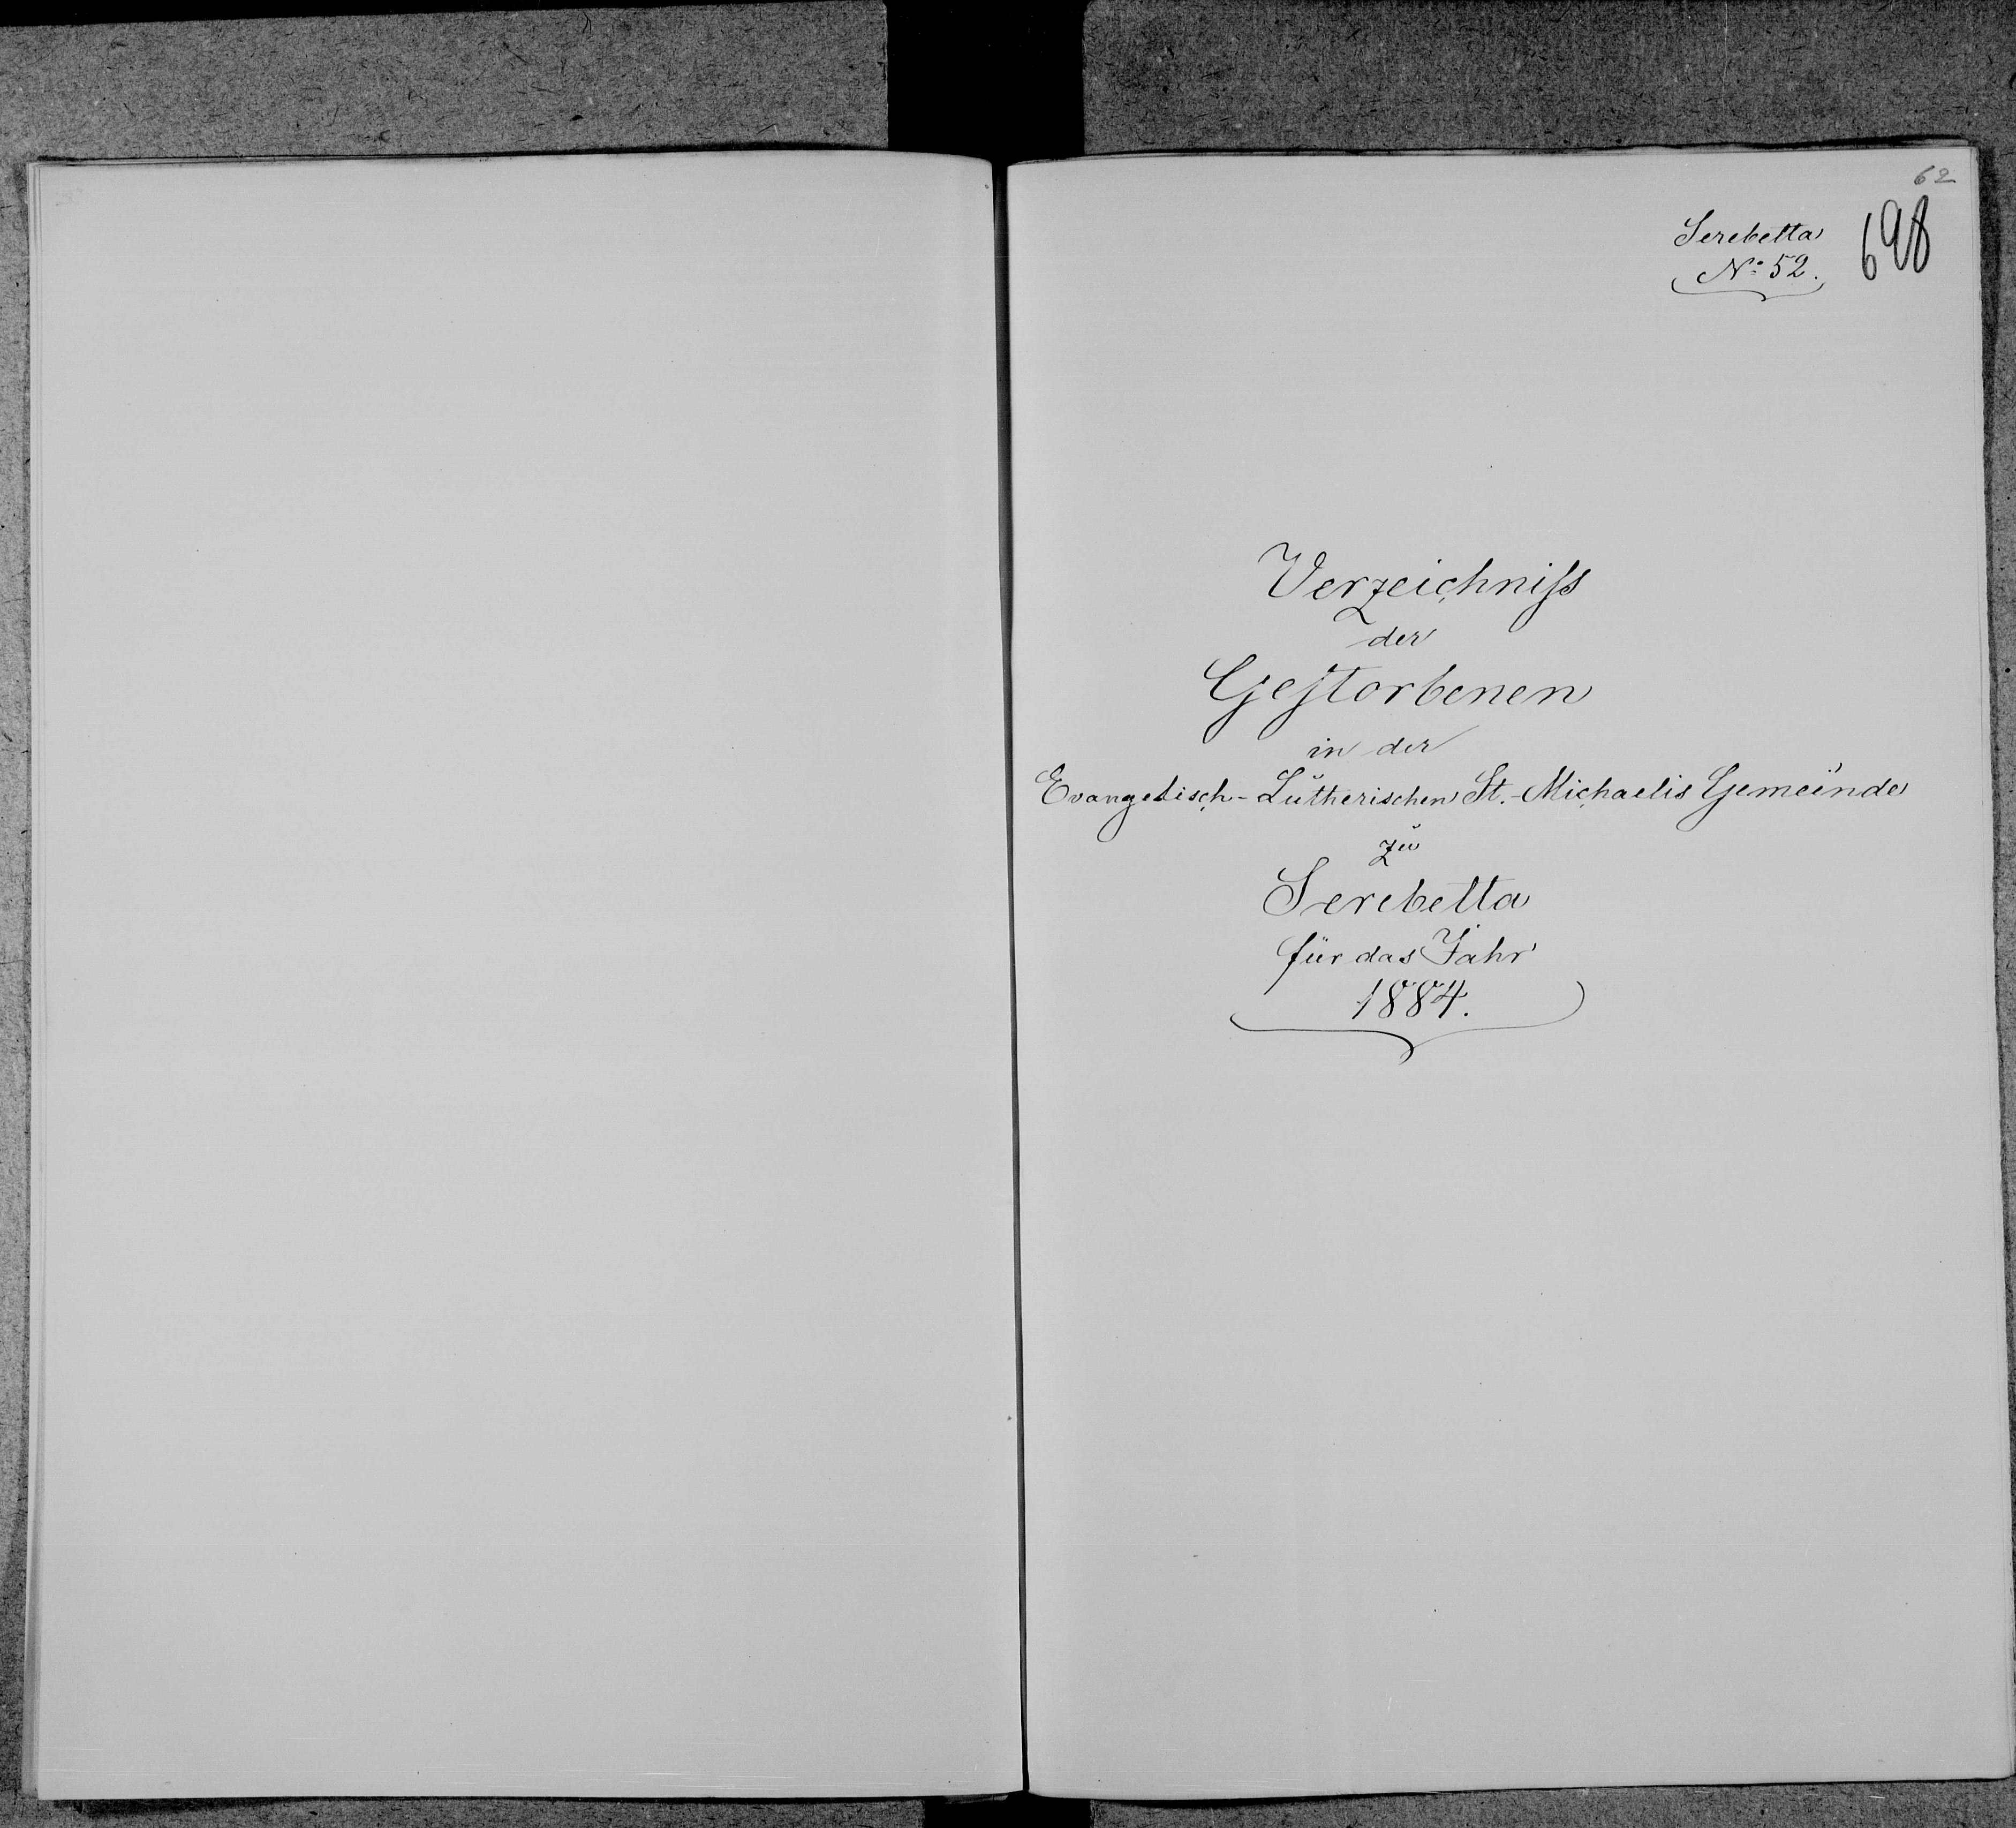 62
Serebelta
698
No 52.
Verzeichniſs
der
Geſtorbenen
in der
Evangelisch-Lutherischen St.-Michaelis Gemeinde
zu
Serebelta
für das Jahr
1884.